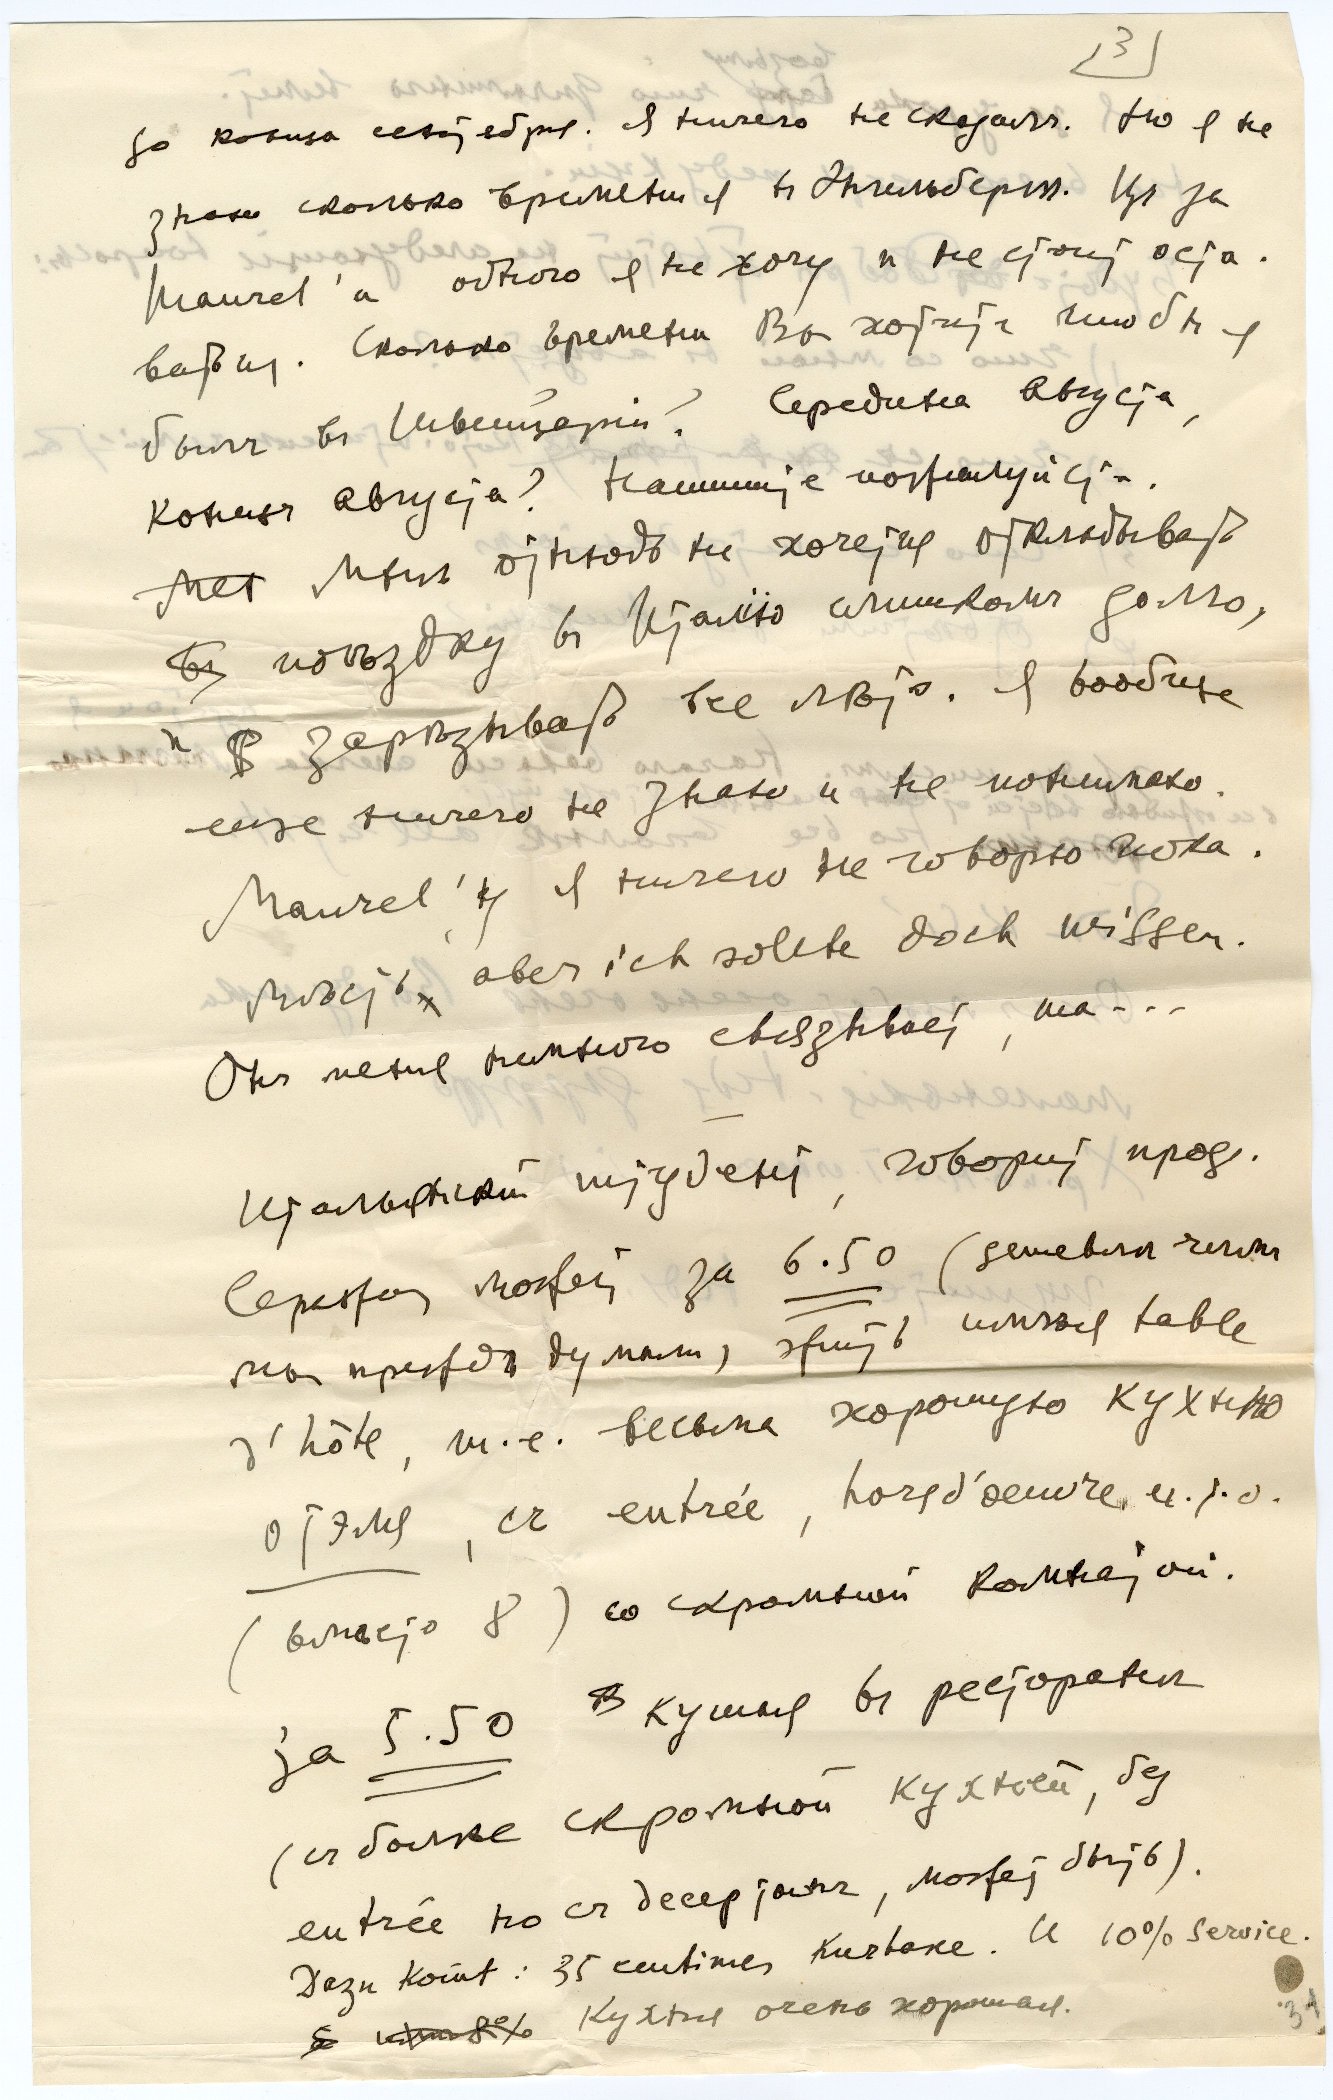 3
до конца сентября. Я ничего не сказалъ. Но я не
знаю сколько времени я въ Энгельберге. Изъ за
Maurel'а одного я не хочу и не стоит оста-
ваться. Сколько времени Вы хотите чтобы я
былъ въ Швейцаріи? Середина Августа,
конецъ Августа? Напишите пожалуйста.
Мнѣ отнюдь не хочется откладывать
поѣздку въ Италію слишкомъ долго,
и зарѣзывать все лѣто. Я вообще
еще ничего не знаю и не понимаю.
Maurel'у я ничего не говорю пока.
aber ich sollte doch wissen.
Онъ меня немного связывает, на---
Итальянский студент, говорит, прод.
может за 6.50 (дешевле чѣмъ
мы прежде думали, жить имѣя table
d'hôte, т.е. весьма хорошую кухню
отэля, съ entrée, hors d'oeuvre и.т.д.
(вмѣсто 8) со скромной комнатой.
За 5.50 кушая въ ресторанѣ
(съ болѣе скромной кухней, без
entrée но съ десертомъ, может быть).
Dazu kommt: 35 centimes Kurtaxe. И 10% service.
Кухня очень хорошая.
31